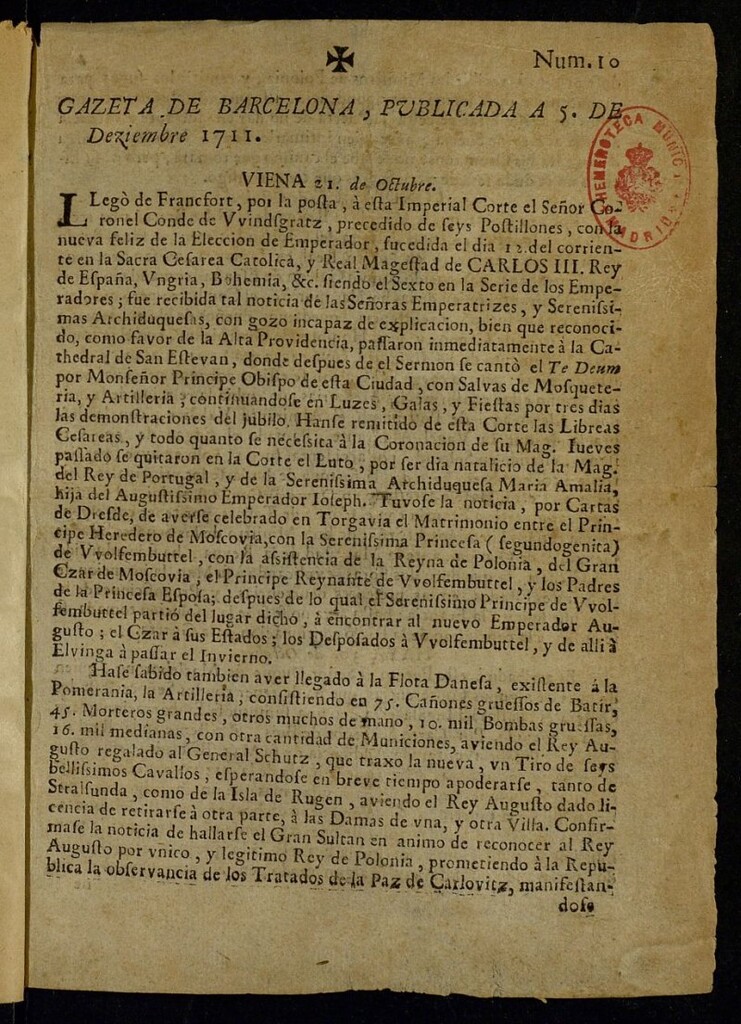 ✠ Num.10
GAZETA DE BARCELONA, PVBLICADA A 5. DE
Deziembre 1711.
VIENA 21. de Octubre.
LLegò de Francfort, por la posta, à esta Imperial Corte el Señor Co-
ronel Conde de Vvindsgratz, precedido de seys Postillones, con la
nueva feliz de la Eleccion de Emperador, sucedida el dia 12. del corrien-
te en la Sacra Cesarea Catolica, y Real Magestad de CARLOS III. Rey
de España, Vngria, Bohemia, &c. siendo el Sexto en la Serie de los Empe-
radores; fue recibida tal noticia de las Señoras Emperatrizes, y Serenissi-
mas Archiduquesas, con gozo incapaz de explicacion, bien que reconoci-
do, como favor de la Alta Providencia, passaron inmediatamente à la Ca-
thedral de San Estevan, donde despues de el Sermon se cantò el Te Deum
por Monseñor Principe Obispo de esta Ciudad, con Salvas de Mosquete-
ria, y Artilleria; continuandose en Luzes, Galas, y Fiestas por tres dias
las demonstraciones del jubilo. Hanse remitido de esta Corte las Libreas
Cesareas, y todo quanto se necessita à la Coronacion de su Mag. Iueves
passado se quitaron en la Corte el Luto, por ser dia natalicio de la Mag.
del Rey de Portugal, y de la Serenissima Archiduquesa Maria Amalia,
hija del Augustissimo Emperador Ioseph. Tuvose la noticia, por Cartas
de Dresde, de averse celebrado en Torgavia el Matrimonio entre el Prin-
cipe Heredero de Moscovia, con la Serenissima Princesa (segundogenita)
de Vvolfembuttel, con la assistencia de la Reyna de Polonia, del Gran
Czar de Moscovia, el Principe Reynante de Vvolfembuttel, y los Padres
de la Princesa Esposa; despues de lo qual el Serenissimo Principe de Vvol-
fembuttel partiò del lugar dicho, à encontrar al nuevo Emperador Au-
gusto; el Czar à sus Estados; los Desposados à Vvolfembuttel, y de alli à
Elvinga à passar el Invierno.
Hase sabido tambien aver llegado à la Flota Danesa, existente à la
Pomerania, la Artilleria, consistiendo en 75. Cañones gruessos de Batir,
45. Morteros grandes, otros muchos de mano, 10. mil Bombas gruessas,
16. mil medianas, con otra cantidad de Municiones, aviendo el Rey Au-
gusto regalado al General Schutz, que traxo la nueva, vn Tiro de seys
bellissimos Cavallos, esperandose en breve tiempo apoderarse, tanto de
Stralsunda, como de la Isla de Rugen, aviendo el Rey Augusto dado li-
cencia de retirarse à otra parte, à las Damas de vna, y otra Villa. Confir-
mase la noticia de hallarse el Gran Sultan en animo de reconocer al Rey
Augusto por vnico, y legitimo Rey de Polonia, prometiendo à la Repu-
blica la observancia de los Tratados de la Paz de Carlovitz, manifestan-
dose
HEMEROTECA MUNICI
MADRID